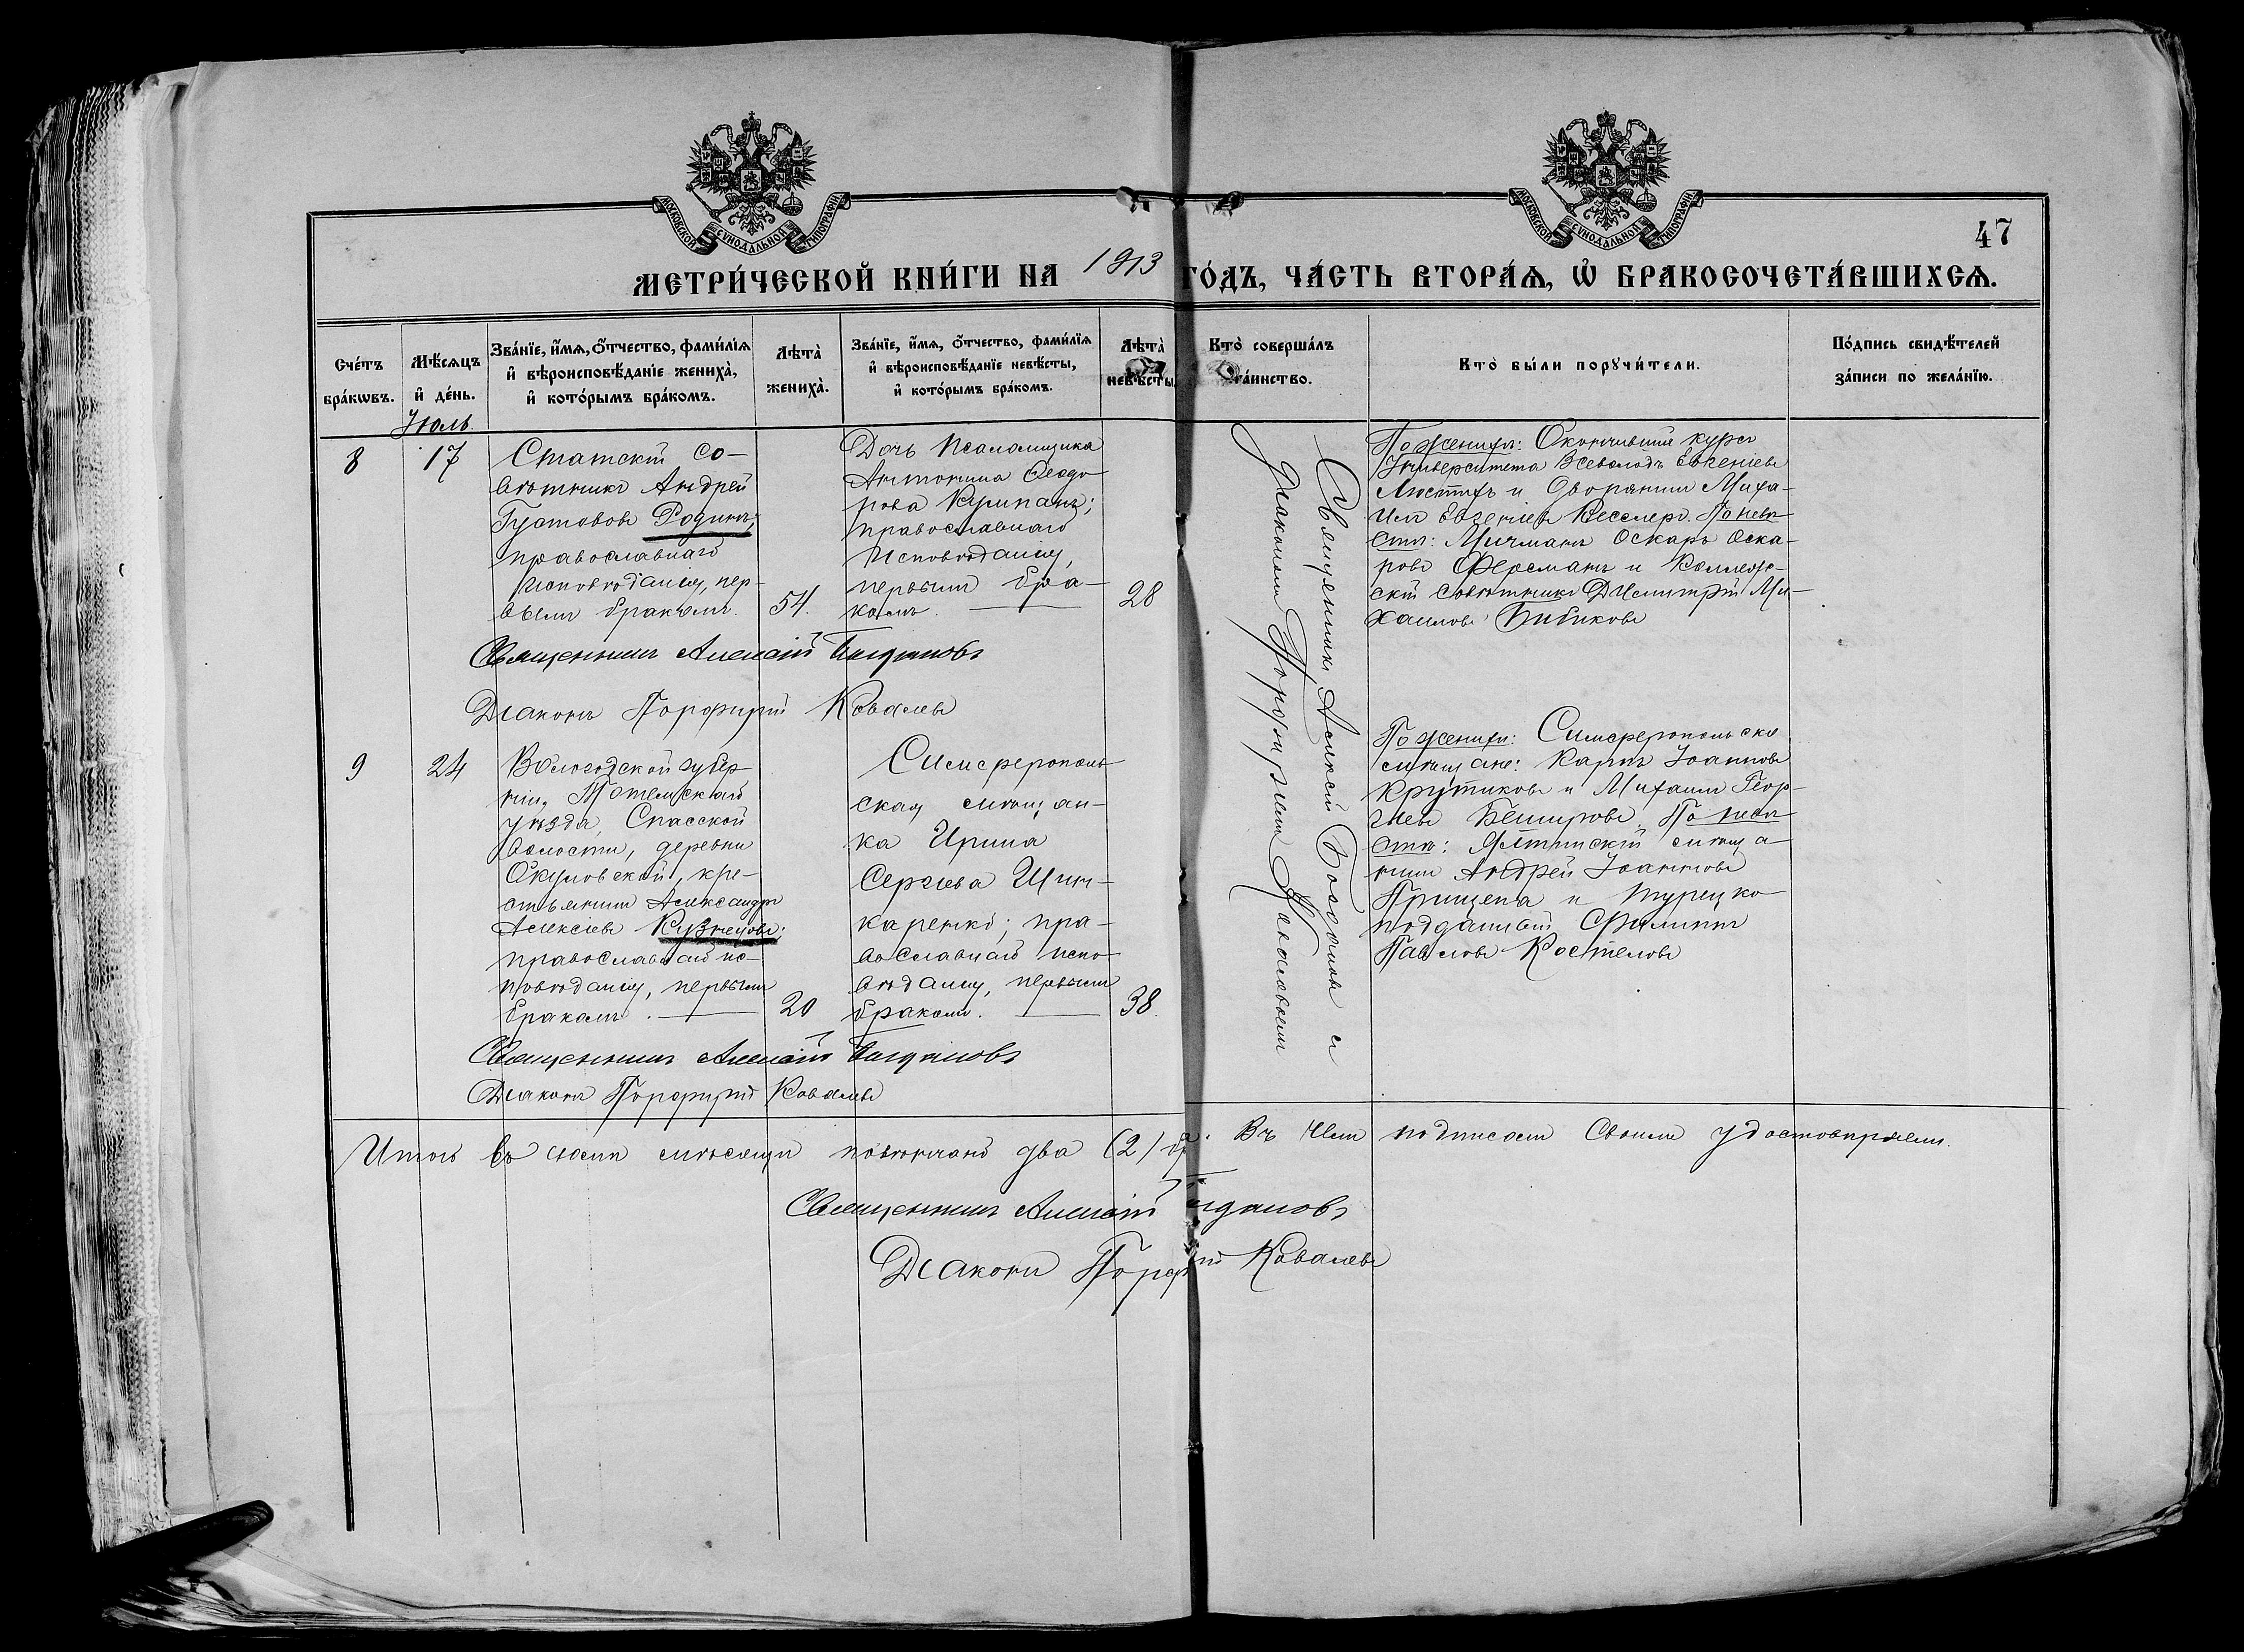 МОСКОВСКОЙ СѴНОДАЛЬНОЙ ТИПОГРАФІИ
МОСКОВСКОЙ СѴНОДАЛЬНОЙ ТИПОГРАФІИ
47
МЕТРИ́ЧЕСКОЙ КНИ́ГИ НА 1913 ГО́ДЪ, ЧА́СТЬ ВТОРА́Ѧ, Ѽ БРАКОСОЧЕТА́ВШИХСѦ.
Сче́тъ
бра́кѡвъ.
Мѣ́сѧцъ
и҆ де́нь.
Зва́нїе, и҆́мѧ, ѻ҆́тчество, фами́лїѧ
и҆ вѣроисповѣ́данїе жениха̀,
и҆ кото́рымъ бра́комъ.
Лѣта̀
жениха̀.
Зва́нїе, и҆́мѧ, ѻ҆́тчество, фами́лїѧ
и҆ вѣроисповѣ́данїе невѣ́сты,
и҆ кото́рымъ бра́комъ.
Лѣта̀
невѣ́сты.
Кто̀ соверша́лъ
та́инство.
Кто̀ бы́ли порꙋчи́тели.
По́дпись свидѣ́телей
за́писи по жела́нїю.
Іюль
8
17
Статскій со-
вѣтникъ Андрей
Густавовъ Родинъ;
православнаго
исповѣданія, пер-
вымъ бракомъ.
54.
Дочь псаломщика
Антонина Ѳеодо-
рова Курипанъ;
православнаго
исповѣданія,
первымъ бра-
комъ.
28
Священникъ Алексій Богдановъ и
Діакономъ Порфиріемъ Ковалевымъ
По женихѣ: Окончившій курсъ
Университета Всеволодъ Евгеніевъ
Люстихъ и Дворянинъ Миха-
илъ Евгеніевъ Кесслеръ. По невѣ-
стѣ: Мичманъ Оскаръ Оска-
ровъ Ферсманъ и Коллеж-
скій совѣтникъ Дмитрій Ми-
хаиловъ Бибиковъ
Священникъ Алексій Богдановъ
Діаконъ Порфирій Ковалевъ
9
24
Вологодской губер-
ніи, Тотемскаго
уѣзда, Спасской
волости, деревни
Окуловской, кре-
стьянинъ Александръ
Алексіевъ Кузнецовъ;
православнаго ис-
повѣданія, первымъ
бракомъ.
20
Симферополь-
ская мѣщан-
ка Ирина
Сергіева Шин-
каренко; пра-
вославнаго испо-
вѣданія, первымъ
бракомъ.
38.
По женихѣ: Симферопольскіе
мѣщане: Карпъ Іоанновъ
Крутиковъ и Михаилъ Геор-
гіевъ Бешировъ. По невѣ-
стѣ: Ялтинскій мѣща-
нинъ Андрей Іоанновъ
Прищепа и турецко-
подданный Филиппъ
Павловъ Костеловъ
Священникъ Алексій Богдановъ
Діаконъ Порфирій Ковалевъ
Итого въ іюлѣ мѣсяцѣ повѣнчано два (2) бр. Въ чемъ подписомъ своимъ удостовѣряемъ.
Священникъ Алексій Богдановъ
Діаконъ Порфирій Ковалевъ